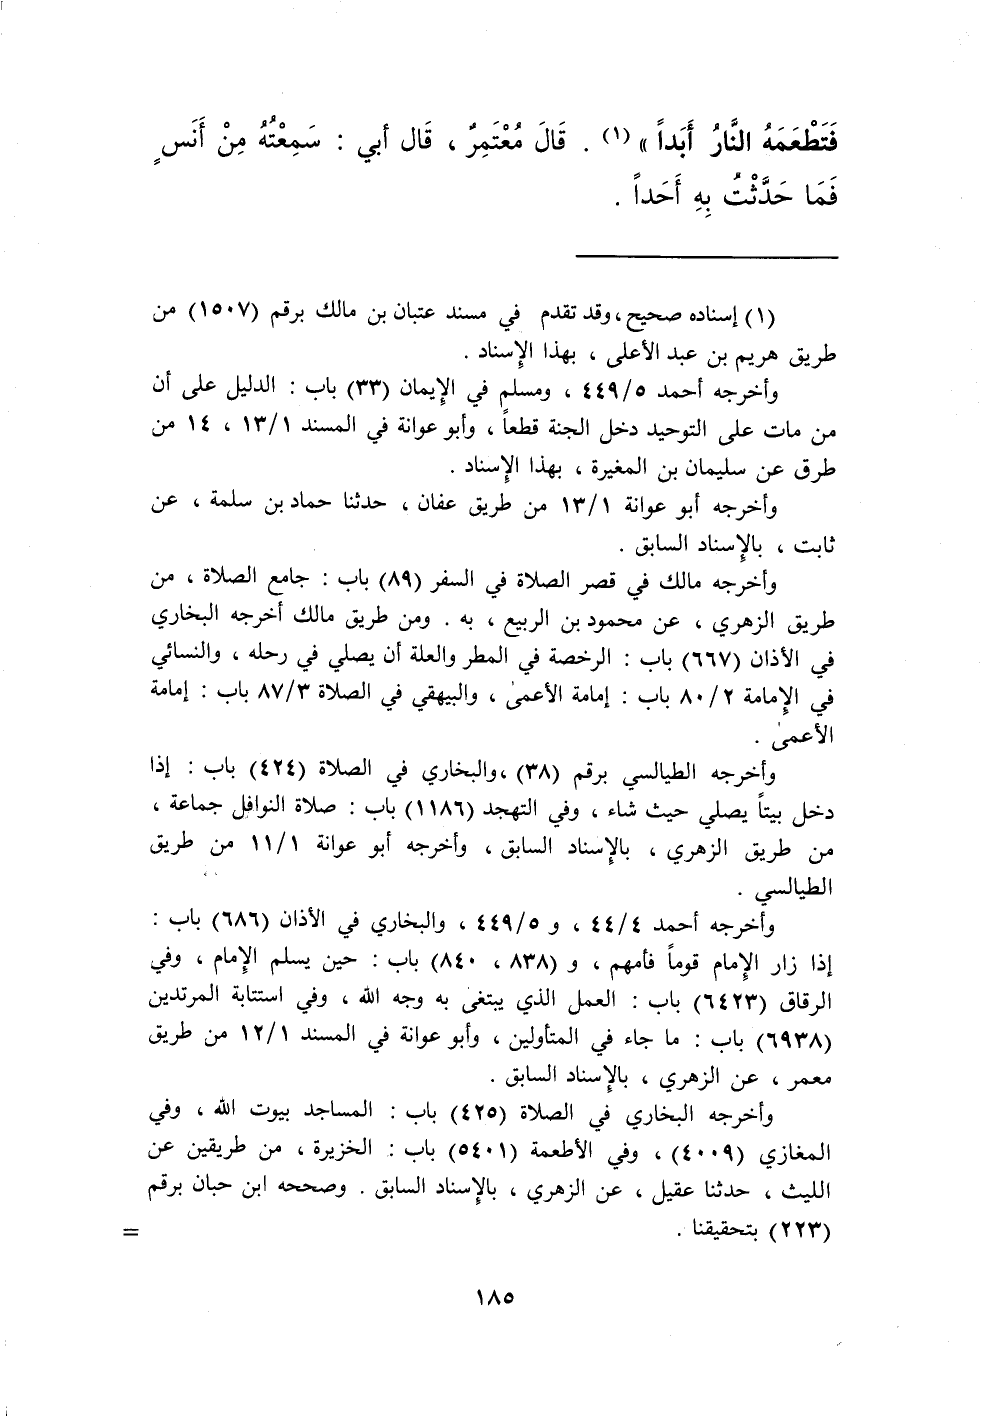 فَتَطْعَمَهُ النَّارُ أَبَداً » (١) . قَالَ مُعْتَمِرٌ ، قَال أبي : سَمِعْتُهُ مِنْ أَنَسٍ
فَمَا حَدَّثْتُ بِهِ أَحَداً .
(١) إسناده صحيح ، وقد تقدم في مسند عتبان بن مالك برقم (١٥٠٧) من
طريق هريم بن عبد الأعلى ، بهذا الإسناد .
وأخرجه أحمد ٤٤٩/٥ ، ومسلم في الإيمان (٣٣) باب : الدليل على أن
من مات على التوحيد دخل الجنة قطعاً ، وأبو عوانة في المسند ١٣/١ ، ١٤ من
طرق عن سليمان بن المغيرة ، بهذا الإسناد .
وأخرجه أبو عوانة ١٣/١ من طريق عفان ، حدثنا حماد بن سلمة ، عن
ثابت ، بالإسناد السابق .
وأخرجه مالك في قصر الصلاة في السفر (٨٩) باب : جامع الصلاة ، من
طريق الزهري ، عن محمود بن الربيع ، به . ومن طريق مالك أخرجه البخاري
في الأذان (٦٦٧) باب : الرخصة في المطر والعلة أن يصلي في رحله ، والنسائي
في الإمامة ٨٠/٢ باب : إمامة الأعمىٰ ، والبيهقي في الصلاة ٨٧/٣ باب : إمامة
الأعمىٰ .
وأخرجه الطيالسي برقم (٣٨) ، والبخاري في الصلاة (٤٢٤) باب : إذا
دخل بيتاً يصلي حيث شاء ، وفي التهجد (١١٨٦) باب : صلاة النوافل جماعة ،
من طريق الزهري ، بالإسناد السابق ، وأخرجه أبو عوانة ١١/١ من طريق
الطيالسي .
وأخرجه أحمد ٤٤/٤ ، و ٤٤٩/٥ ، والبخاري في الأذان (٦٨٦) باب :
إذا زار الإمام قوماً فأمهم ، و (٨٣٨ ، ٨٤٠) باب : حين يسلم الإمام ، وفي
الرقاق (٦٤٢٣) باب : العمل الذي يبتغى به وجه الله ، وفي استتابة المرتدين
(٦٩٣٨) باب : ما جاء في المتأولين ، وأبو عوانة في المسند ١٢/١ من طريق
معمر ، عن الزهري ، بالإسناد السابق .
وأخرجه البخاري في الصلاة (٤٢٥) باب : المساجد بيوت الله ، وفي
المغازي (٤٠٠٩) ، وفي الأطعمة (٥٤٠١) باب : الخزيرة ، من طريقين عن
الليث ، حدثنا عقيل ، عن الزهري ، بالإسناد السابق . وصححه ابن حبان برقم
(٢٢٣) بتحقيقنا . =
١٨٥